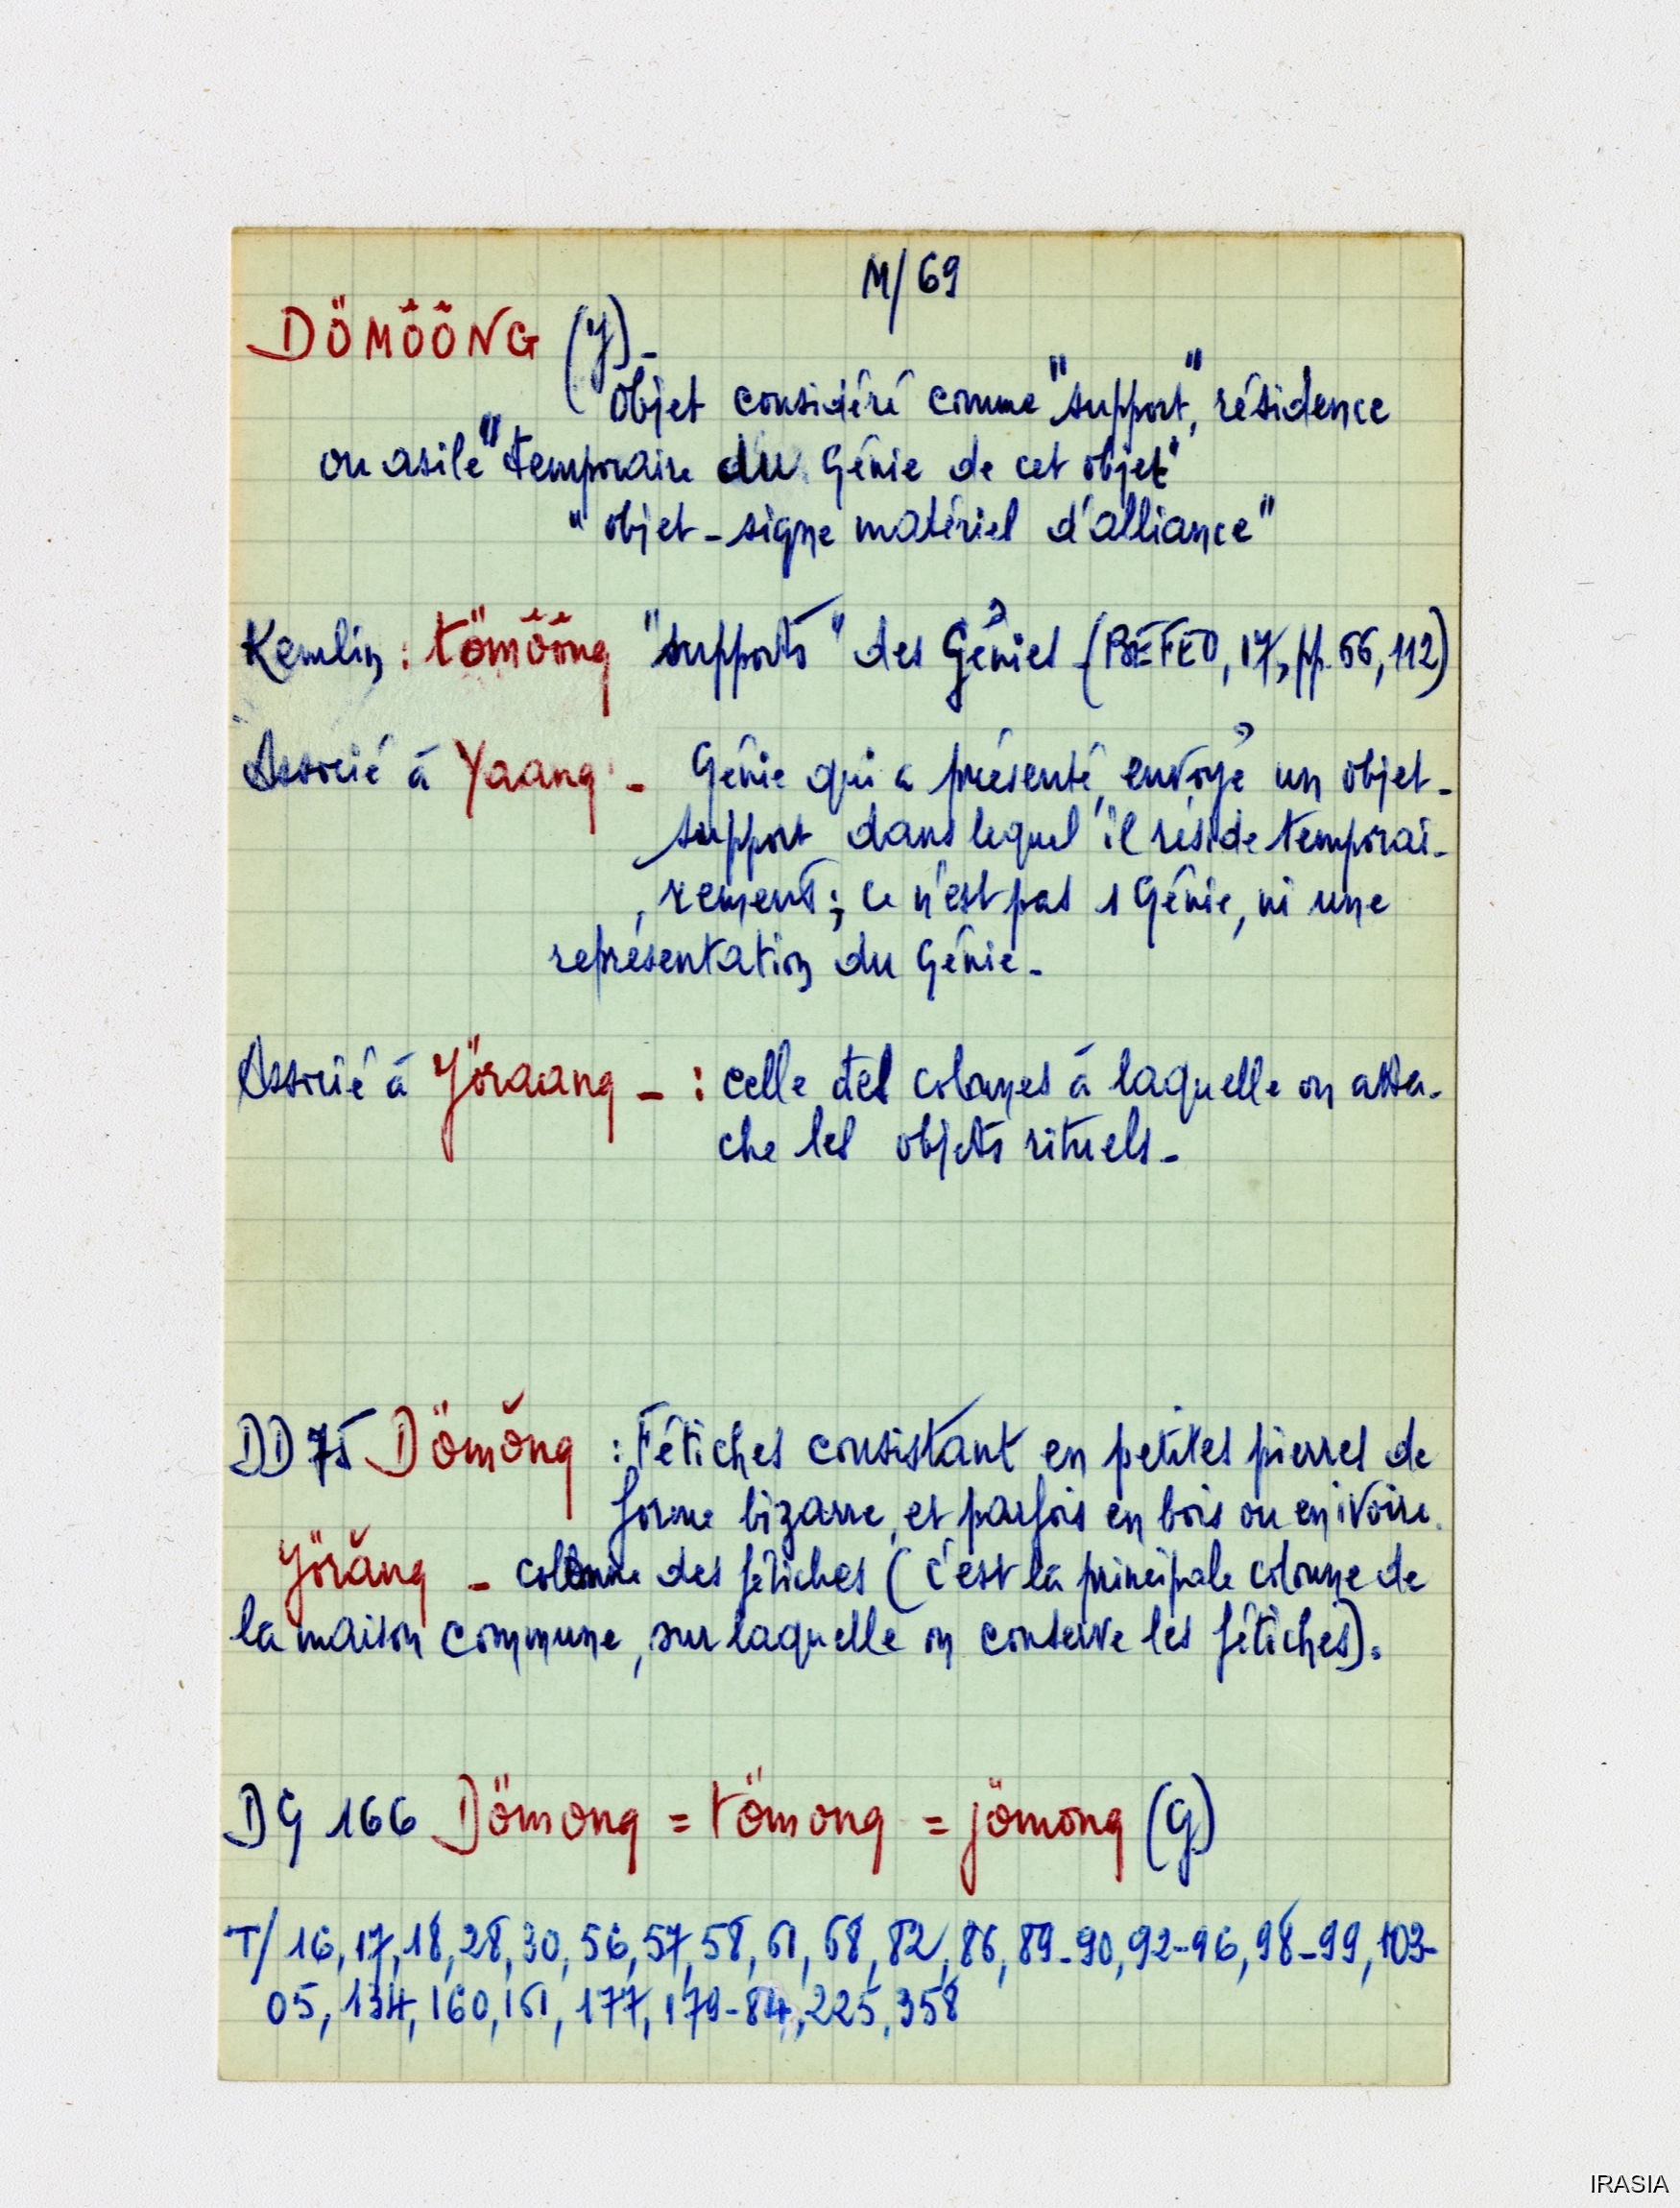 M/69
DÖMÔÔNG (Y)_
Objet considéré comme "support", résidence
ou asile" temporaire du Génie de cet objet"
" objet-signe matériel d'alliance"
Kemlin : tömôông "supports" des Génies (BEFEO, 17, pp. 56, 112)
Associé à Yaang - Génie qui a présenté, envoyé un objet-
support dans lequel il réside temporai-
rement ; ce n'est pas 1 Génie, ni une
représentation du Génie -
Associé à Yöraang - : celle des colonnes à laquelle on atta-
che les objets rituels -
DD 75 Dömŏng : Fétiches consistant en petites pierres de
forme bizarre, et parfois en bois ou en ivoire.
Yörăng - colonne des fétiches (c'est la principale colonne de
la maison commune, sur laquelle on conserve les fétiches).
DG 166 Dömong = tömong = jömong (G)
T/ 16, 17, 18, 28, 30, 56, 57, 58, 61, 68, 82, 86, 89-90, 92-96, 98-99, 103-
05, 134, 160, 161, 177, 179-84, 225, 358
IRASIA